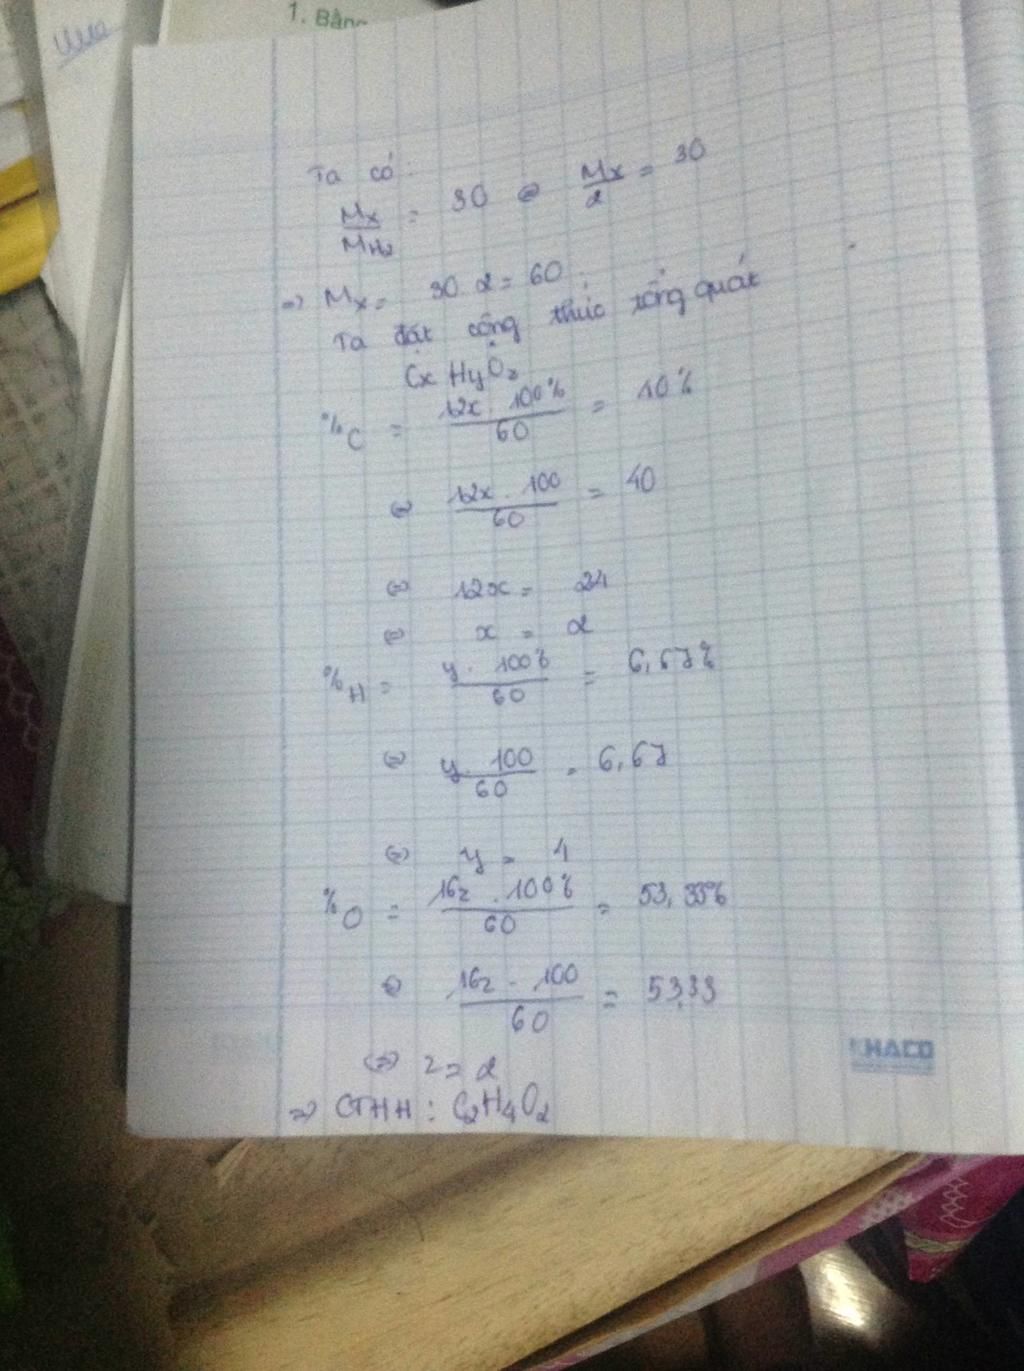 1. Bằng
Ta có:
Mx/MH₂ = 30 ⇔ Mx/2 = 30
=> Mx = 30.2 = 60
Ta đặt công thức tổng quát
CxHyOz
%C = 12x.100%/60 = 40%
⇔ 12x.100/60 = 40
⇔ 12x = 24
⇔ x = 2
%H = y.100%/60 = 6,67%
⇔ y.100/60 = 6,67
⇔ y = 4
%O = 16z.100%/60 = 53,33%
⇔ 16z.100/60 = 53,33
⇔ z = 2
=> CTHH: C₂H₄O₂
KHACO